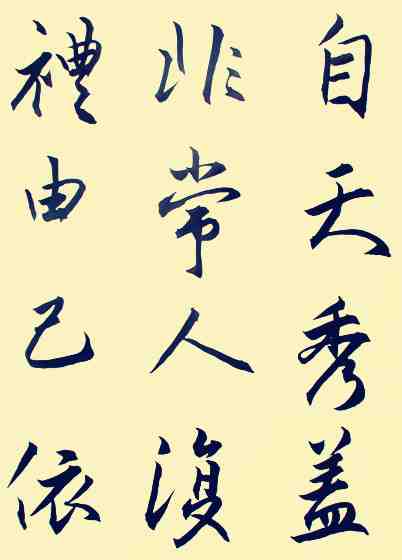 自天秀盖
非常人復
禮由己依